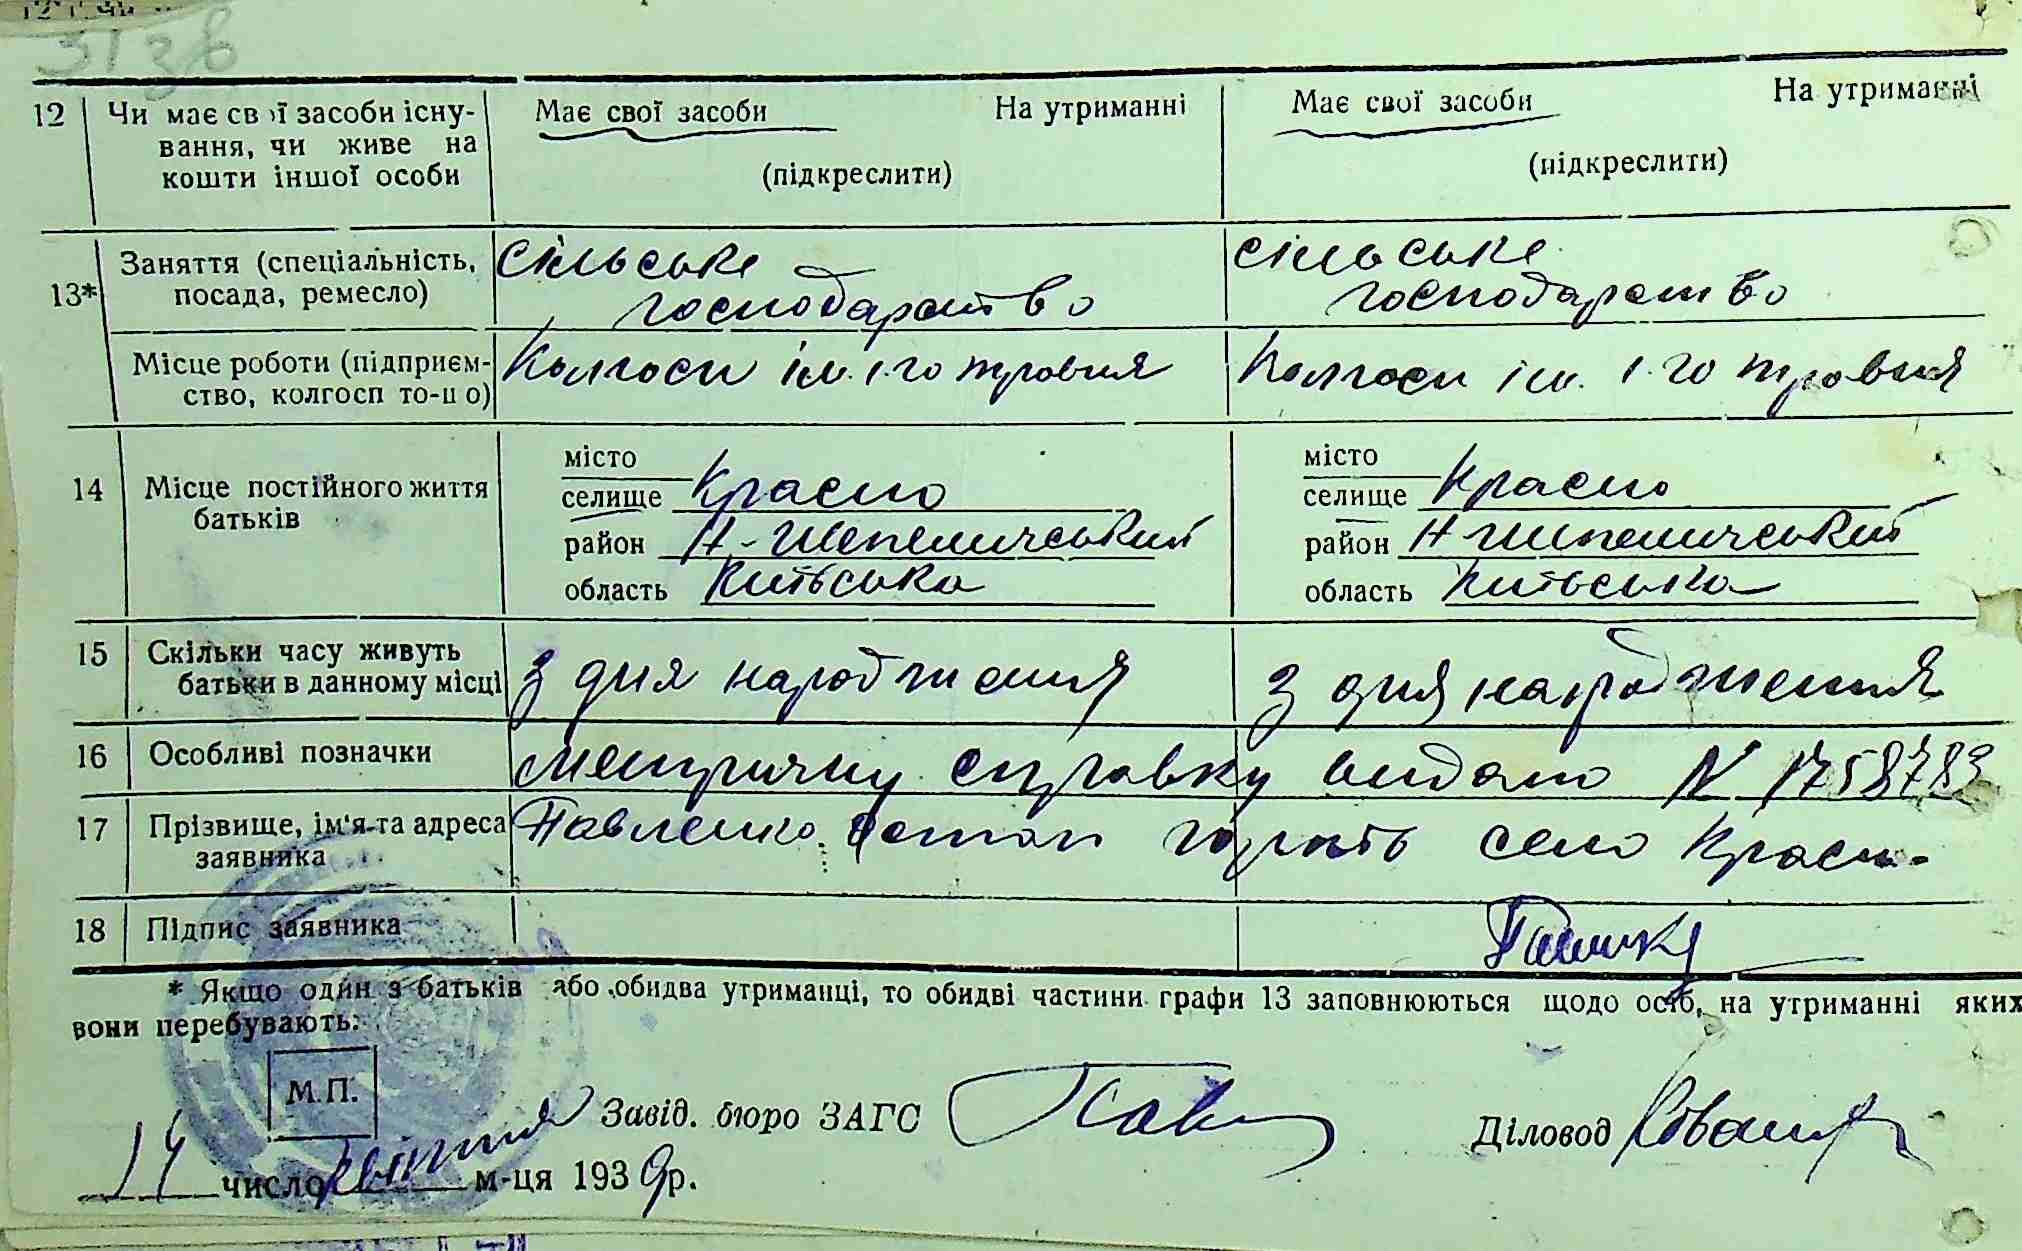 31 зв
12 Чи має свої засоби існу- Має свої засоби На утриманні Має свої засоби На утриманні
вання, чи живе на
кошти іншої особи (підкреслити) (підкреслити)
Заняття (спеціальність, сільське сільське
13* посада, ремесло) господарство господарство
Місце роботи (підприєм- Колгосп ім. 1-го травня Колгосп ім. 1-го травня
ство, колгосп то-що)
місто місто
14 Місце постійного життя селище Красно селище Красно
батьків район Н-Шепеличський район Н-Шепеличський
область Київська область Київська
15 Скільки часу живуть з дня народження з дня народження
батьки в данному місці
16 Особливі позначки метричну справку видано N 1758783
17 Прізвище, ім'я та адреса Павленко Остап село Красно
заявника
18 Підпис заявника
* Якщо один з батьків або обидва утриманці, то обидві частини графи 13 заповнюються щодо осіб, на утриманні яких
вони перебувають.
М.П.
Завід. бюро ЗАГС Діловод
14 число квітня м-ця 1939р.